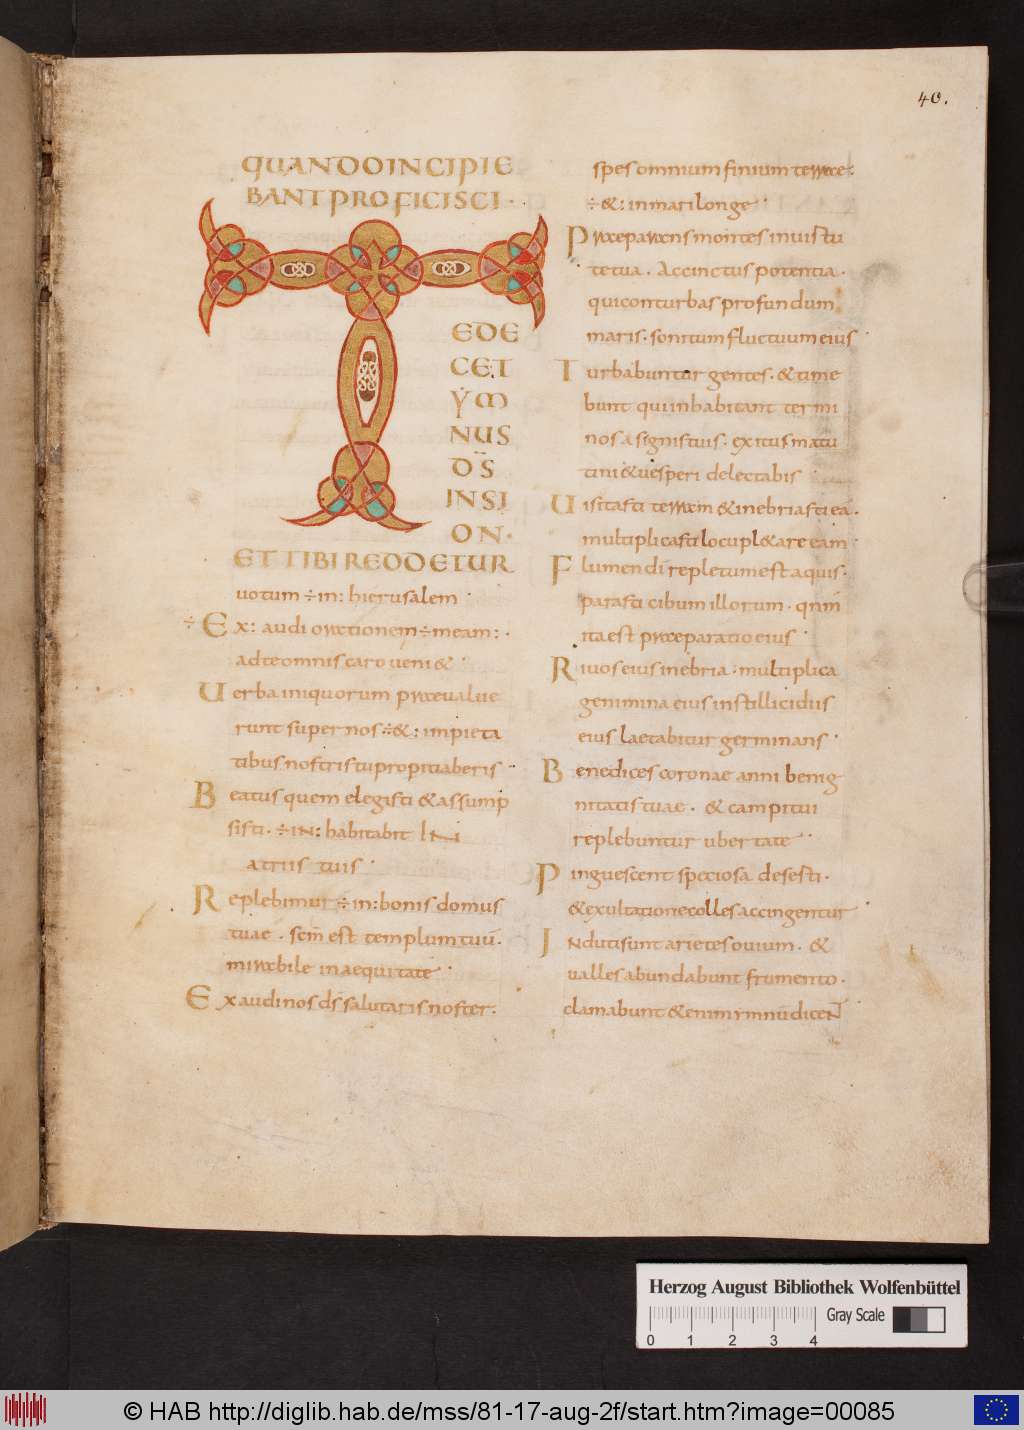 40.
QUANDO INCIPIE
BANT PROFICISCI·
T
EDE
CET
ẎM
NUS
DS̄
INSI
ON·
ET TIBI REDDETUR
uotum ÷in: hierusalem·
÷Ex: audi orationem÷meam:·
ad te omnis caro ueni&·
Uerba iniquorum praeualue
runt super nos ÷&: impieta
tibus nostris tu propitiaberis·
Beatus quem elegisti & assump
sisti· ÷IN: habitabit IN
atriis tuis·
Replebimur ÷in: bonis domus
tuae· scm̄ est templum tuū·
mirabile in aequitate·
Exaudi nos ds̄ salutaris noster·
spes omnium finium terrae·
÷&: in mari longe·
Praeparans montes in uirtu
te tua· Accinctus potentia·
qui conturbas profundum
maris· sonitum fluctuum eius·
Turbabuntur gentes· & time
bunt qui inhabitant termi
nos a signis tuis· exitus matu
tini & uesperi delectabis·
Uisitasti terram & inebriasti eā·
multiplicasti locupl&are eam·
Flumen dī repletum est aquis·
parasti cibum illorum· qnm̄
ita est praeparatio eius·
Riuos eius inebria· multiplica
genimina eius in stillicidiis
eius laetabitur germinans·
Benedices coronae anni benig
nitatis tuae· & campi tui
replebuntur ubertate·
Pinguescent speciosa deserti·
& exultatione colles accingentur·
INduti sunt arietes ouium· &
ualles abundabunt frumento·
clamabunt & enim ymnū diceNT
Herzog August Bibliothek Wolfenbüttel
Gray Scale
0 1 2 3 4
© HAB http://diglib.hab.de/mss/81-17-aug-2f/start.htm?image=00085